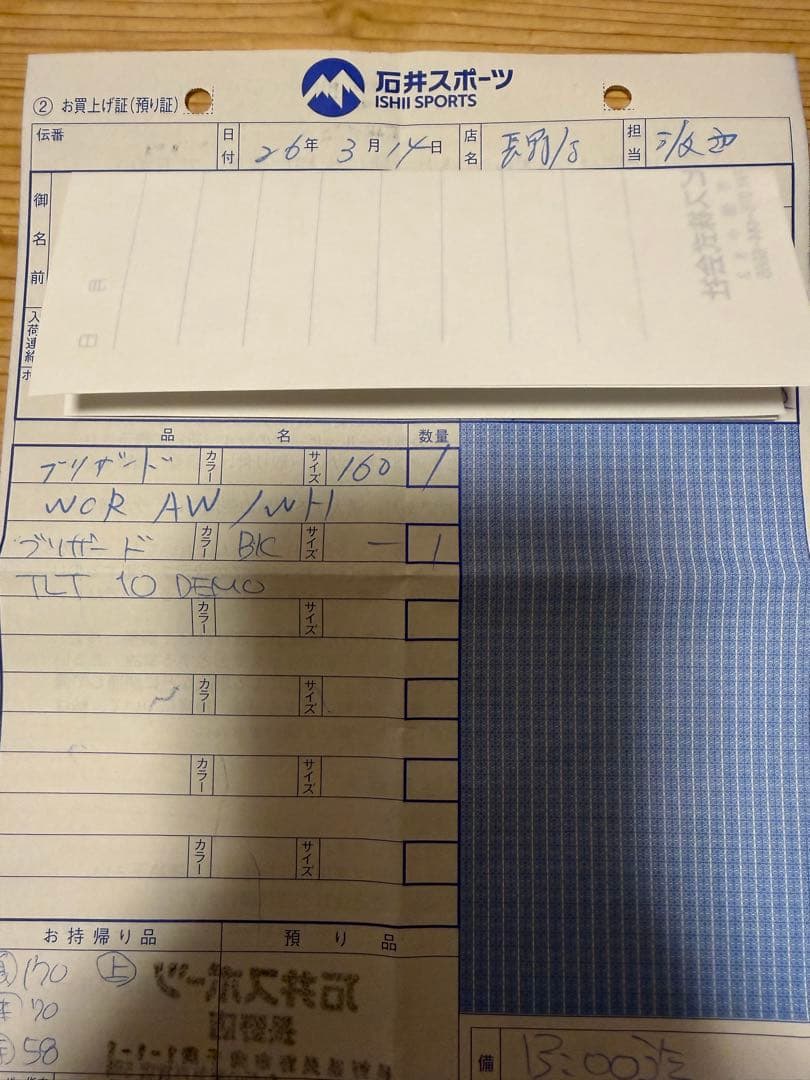 石井スポーツ
ISHII SPORTS
② お買上げ証(預り証)
伝番 日付 26年 3月 14日 店名 長野/S 担当
御名前
入荷連絡
品名 数量
ブリザード カラー サイズ 160 1
WCR AW /WH
ブリザード カラー BK サイズ ー 1
TLT 10 DEMO
カラー サイズ
カラー サイズ
カラー サイズ
カラー サイズ
お持帰り品 預り品
170 上
70
58
石井スポーツ
長野店
備 13:00